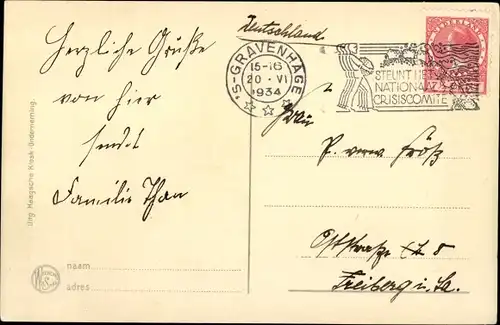 Deutschland
Herzliche Grüße
von hier
sendet
Familie Than
'S-GRAVENHAGE
15-16
20 · VI
1934
STEUNT HET
NATIONAAL
CRISISCOMITE
NEDERLAND
Frau
P. verw.
Oststraße 8
Freiberg i. Sa.
naam
adres
Uitg. Haagsche Kiosk-Onderneming.